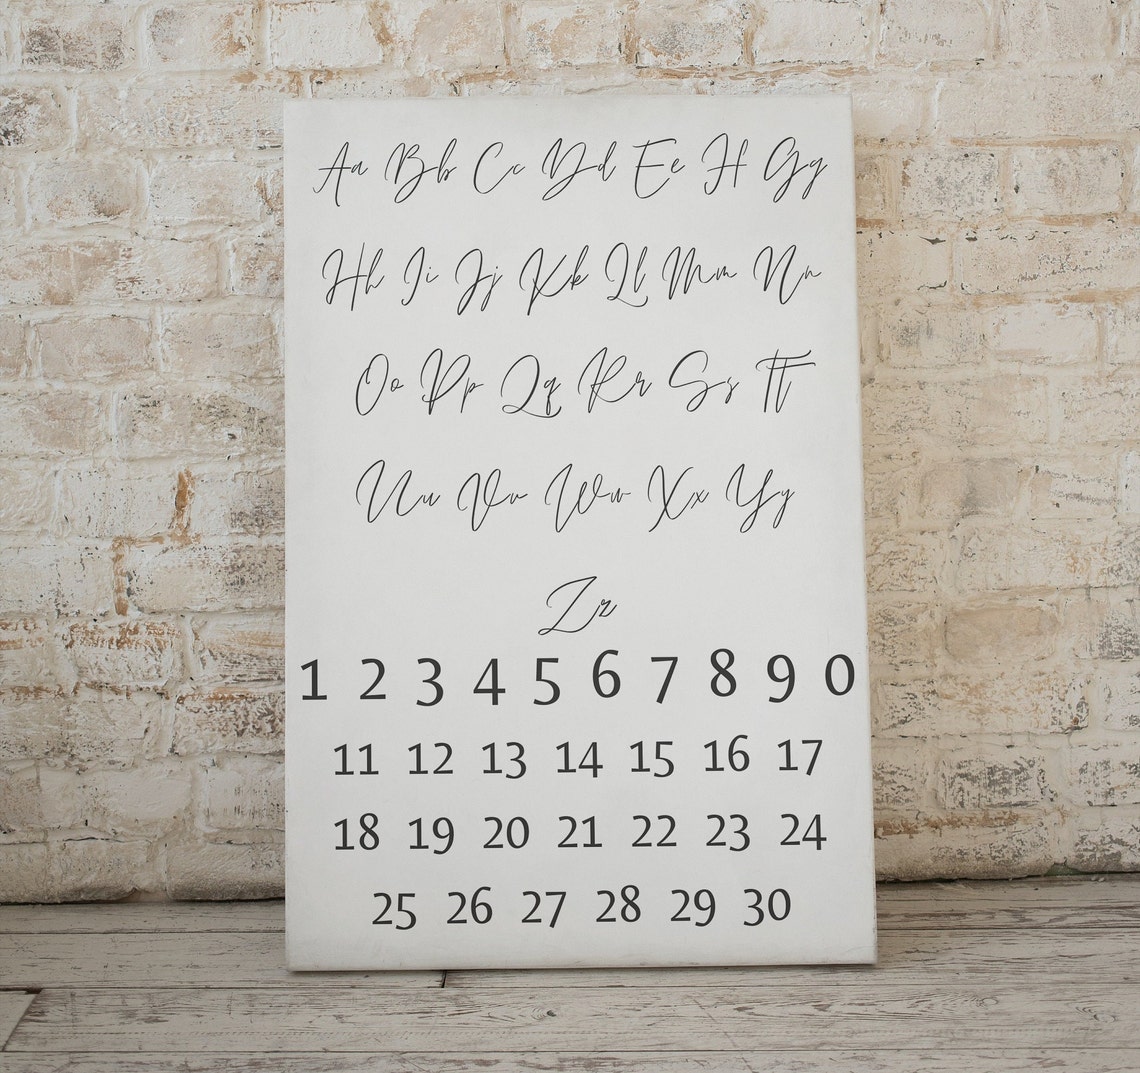 Aa Bb Cc Dd Ee Ff Gg
Hh Ii Jj Kk Ll Mm Nn
Oo Pp Qq Rr Ss Tt
Uu Vv Ww Xx Yy
Zz
1 2 3 4 5 6 7 8 9 0
11 12 13 14 15 16 17
18 19 20 21 22 23 24
25 26 27 28 29 30